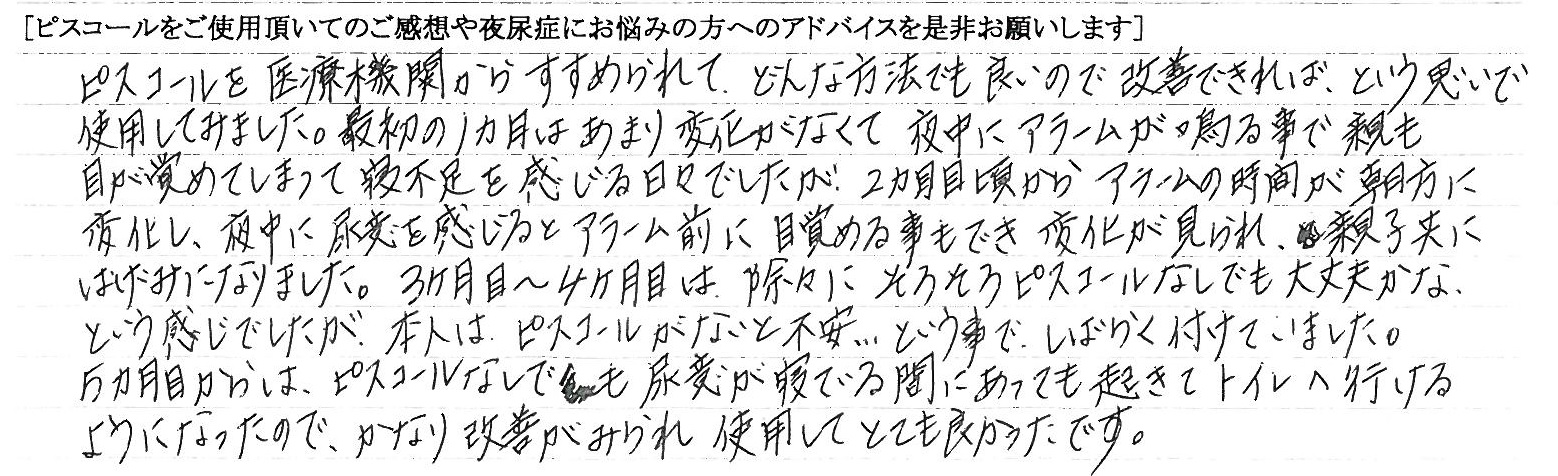 [ピスコールをご使用頂いてのご感想や夜尿症にお悩みの方へのアドバイスを是非お願いします]
ピスコールを医療機関からすすめられて、どんな方法でも良いので改善できれば、という思いで
使用してみました。最初の1カ月はあまり変化がなくて夜中にアラームが鳴る事で親も
目が覚めてしまって寝不足を感じる日々でしたが、2カ月目頃からアラームの時間が朝方に
変化し、夜中に尿意を感じるとアラーム前に目覚める事もでき変化が見られ、親子共に
はげみになりました。3ヶ月目〜4ヶ月目は、除々にそろそろピスコールなしでも大丈夫かな、
という感じでしたが、本人は、ピスコールがないと不安…という事で、しばらく付けていました。
5カ月目からは、ピスコールなしでも尿意が寝てる間にあっても起きてトイレへ行ける
ようになったので、かなり改善がみられ使用してとても良かったです。